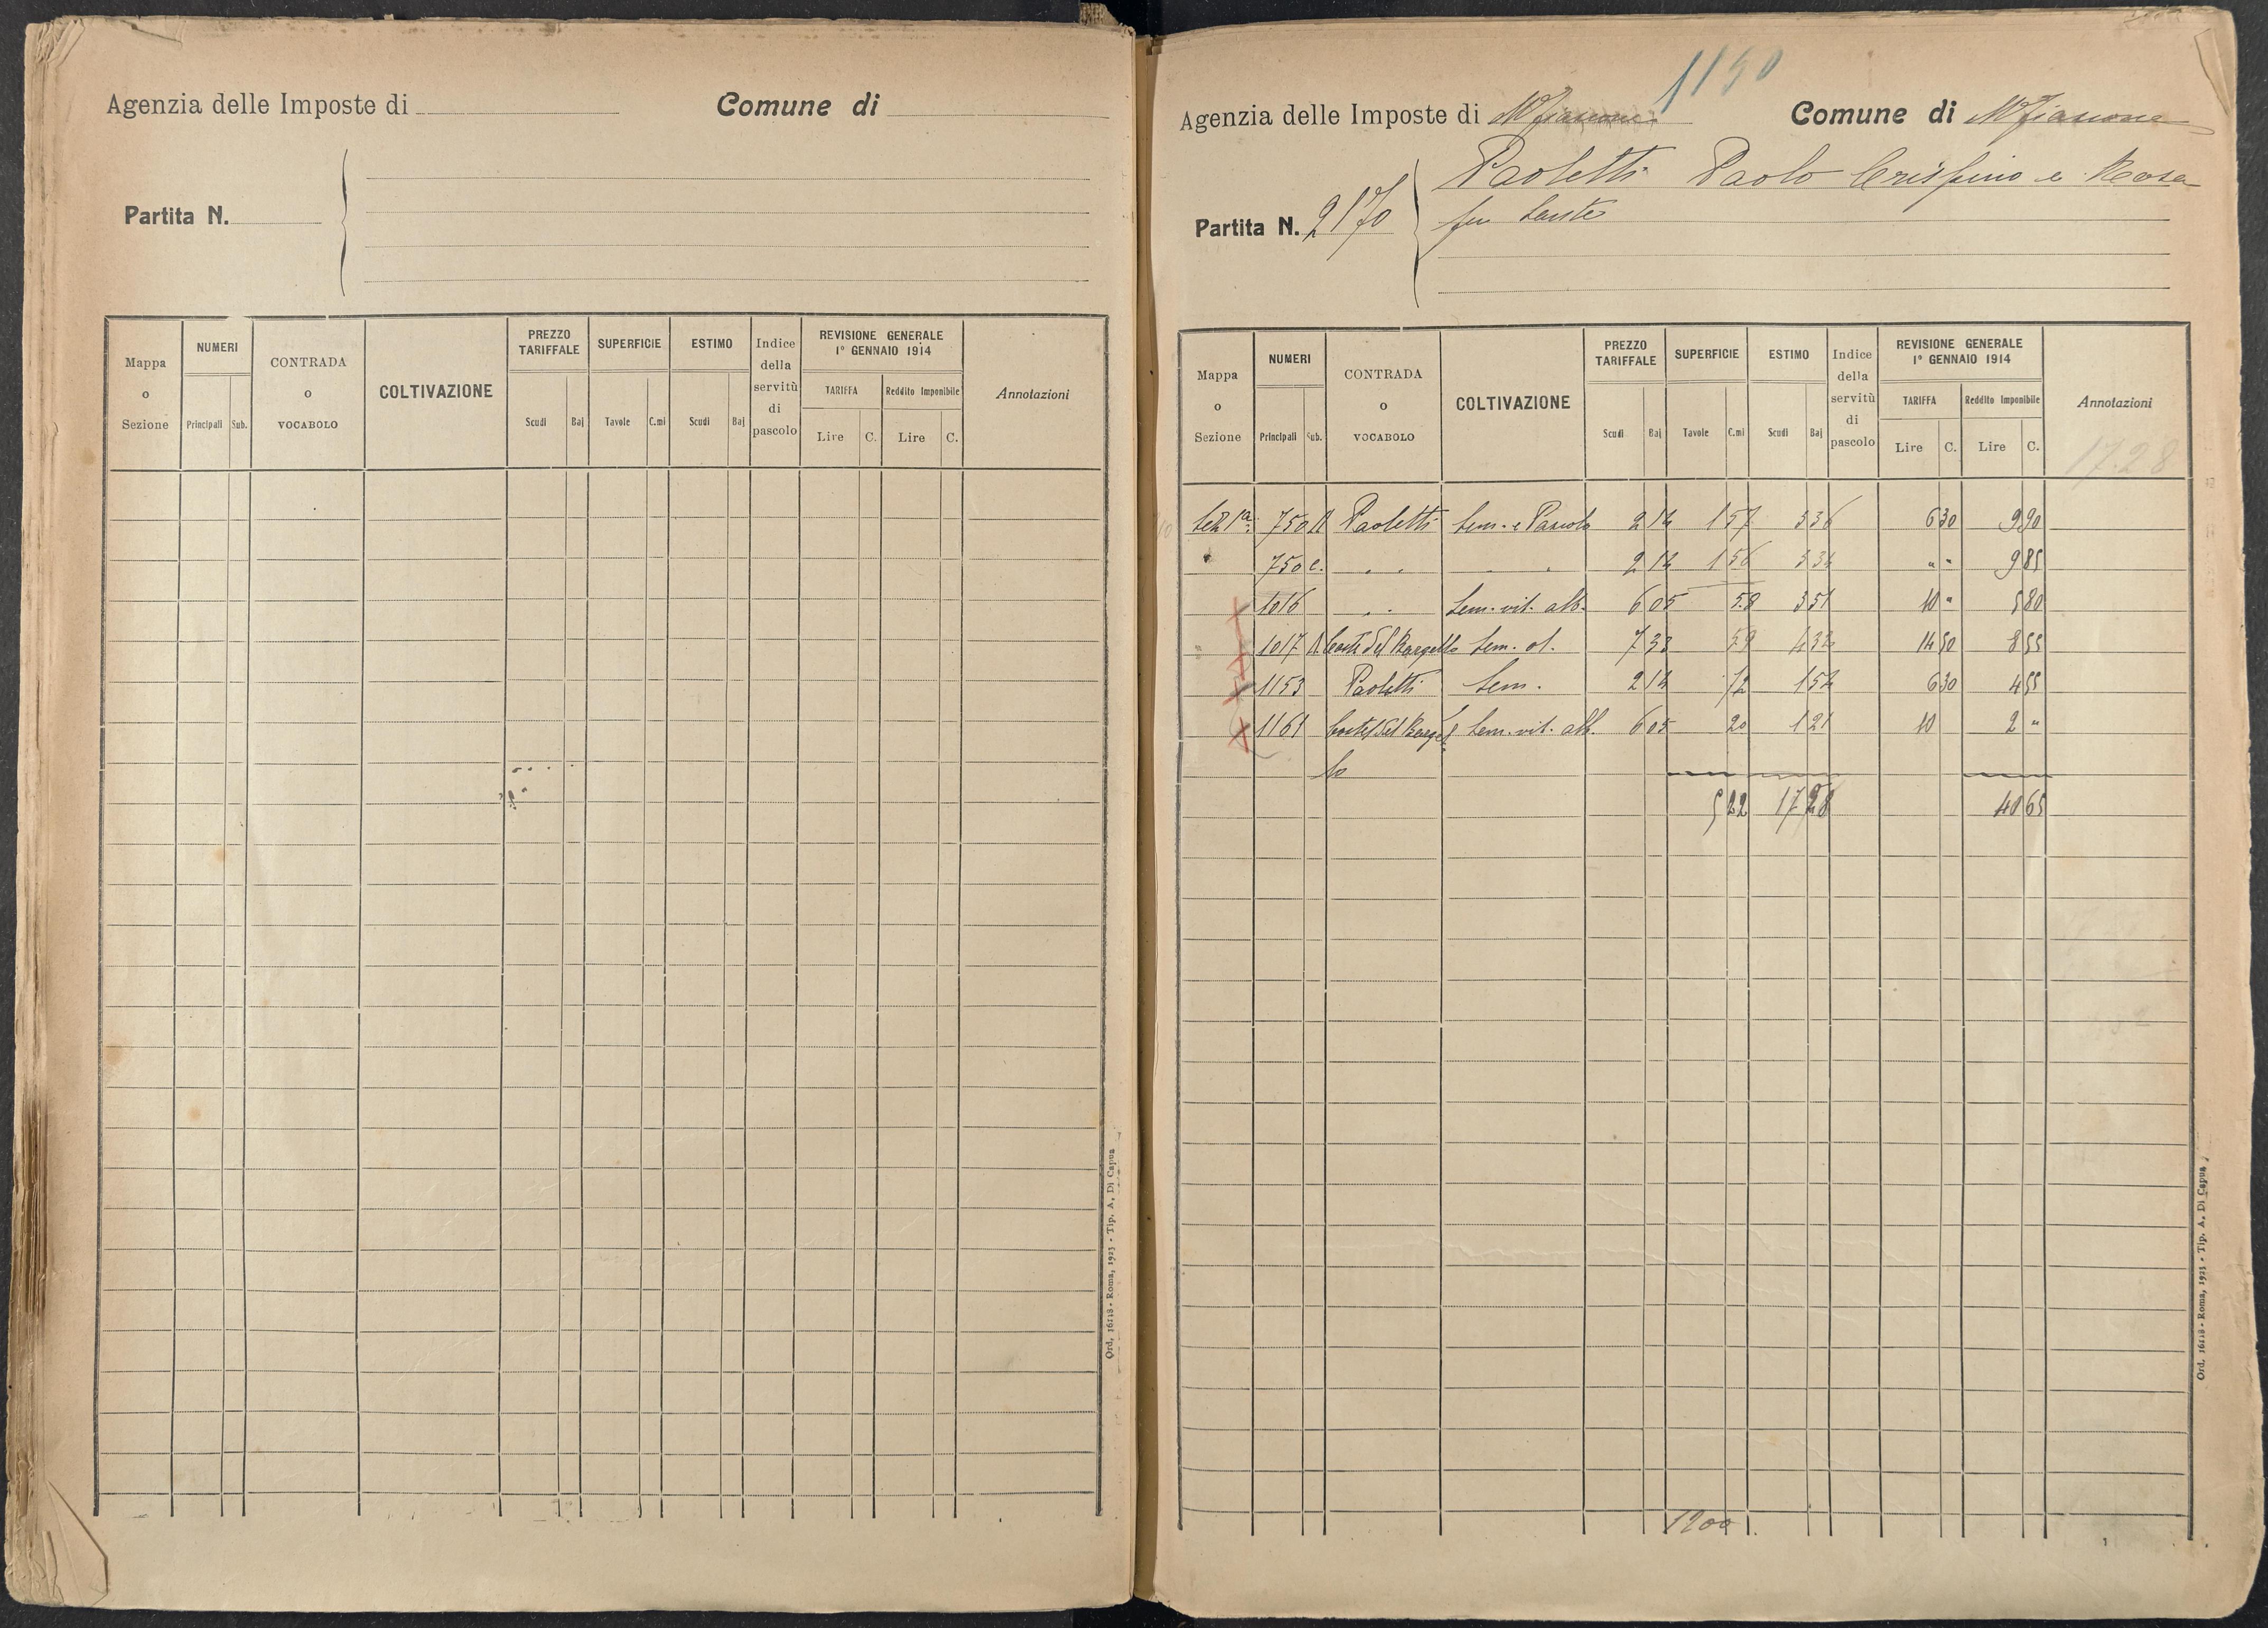 Agenzia delle Imposte di
Comune di
Partita N.
Mappa o Sezione
NUMERI
Principali
Sub.
CONTRADA o VOCABOLO
COLTIVAZIONE
PREZZO TARIFFALE
Scudi
Baj
SUPERFICIE
Tavole
C.mi
ESTIMO
Scudi
Baj
Indice della servitù di pascolo
REVISIONE GENERALE
1° GENNAIO 1914
TARIFFA
Lire
C.
Reddito Imponibile
Lire
C.
Annotazioni
Ord. 16118 - Roma, 1923 - Tip. A. Di Capua
1190
Agenzia delle Imposte di Mfiascone
Comune di Mfiascone
Partita N. 2170
Paoletti Paolo Crispino e Rosa
fu Sante
Mappa o Sezione
NUMERI
Principali
Sub.
CONTRADA o VOCABOLO
COLTIVAZIONE
PREZZO TARIFFALE
Scudi
Baj
SUPERFICIE
Tavole
C.mi
ESTIMO
Scudi
Baj
Indice della servitù di pascolo
REVISIONE GENERALE
1° GENNAIO 1914
TARIFFA
Lire
C.
Reddito Imponibile
Lire
C.
Annotazioni
17.28
Sez 1a 750 Paoletti Sem. e Pascolo 2 14 1 57 3 36 6 30 9 90
" 750 c. " " " " 2 14 1 56 3 34 " " 9 85
1016 " " Sem. vit. alb. 6 05 58 3 51 10 " 5 80
1017 Coste del Bargello Sem. ol. 7 33 59 4 32 14 50 8 55
1153 Paoletti Sem. 2 14 72 1 54 6 30 4 55
1161 Coste del Bargel Sem. vit. alb. 6 05 20 1 21 10 2 "
lo
5 22 17 28 40 65
1200
Ord. 16118 - Roma, 1923 - Tip. A. Di Capua